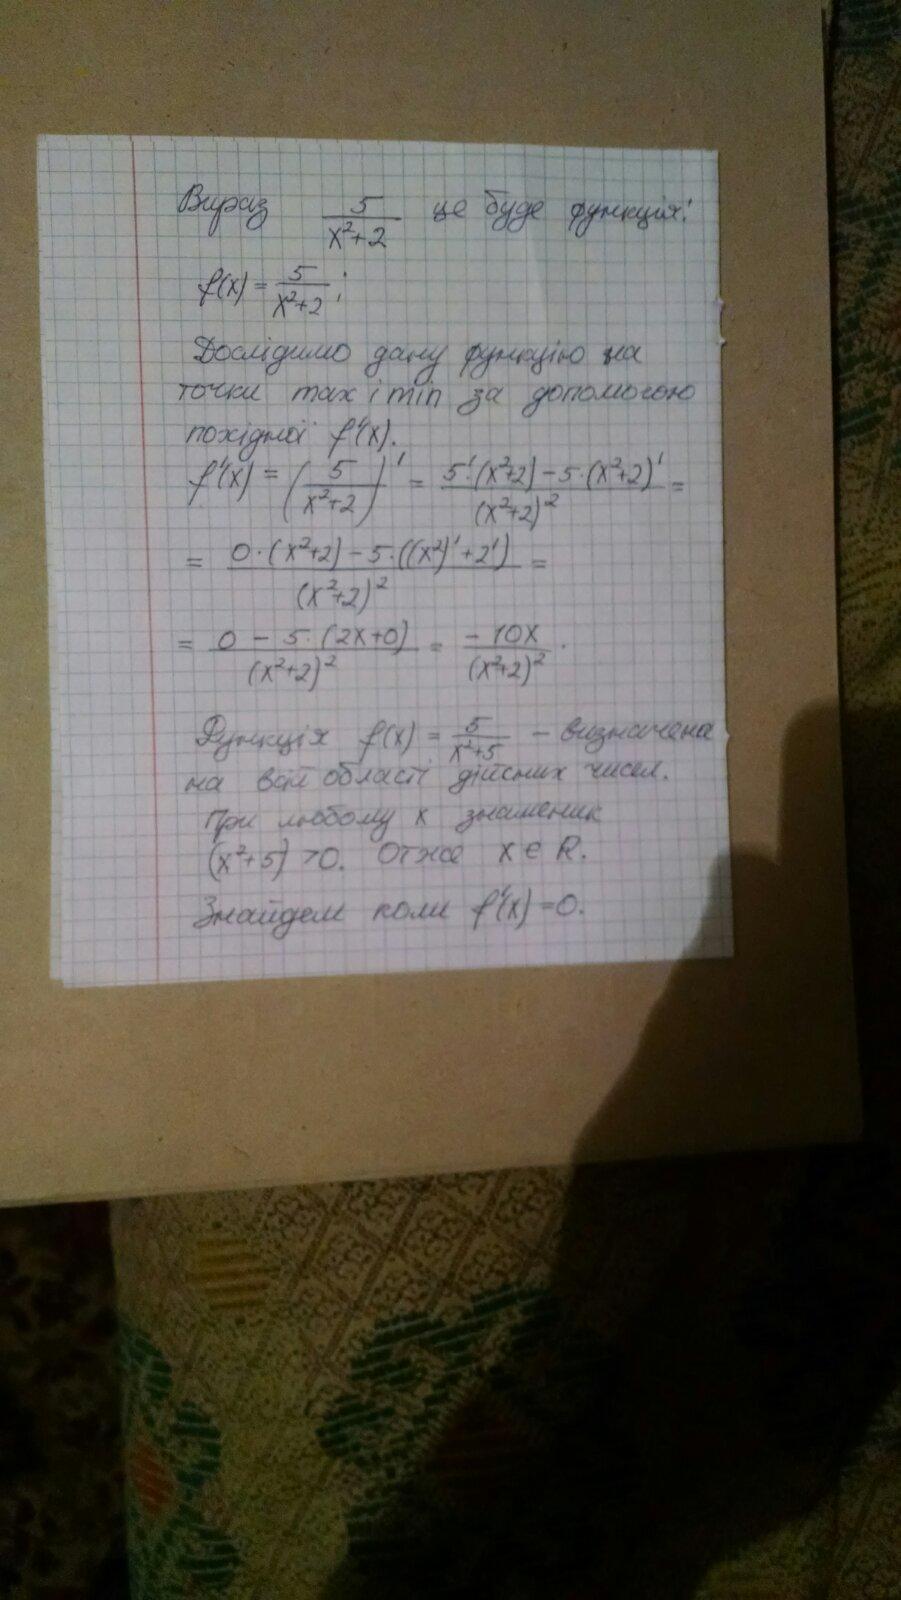 Вираз 5/(x²+2) це буде функція:
f(x) = 5/(x²+2);
Дослідимо дану функцію на
точки max і min за допомогою
похідної f'(x).
f'(x) = (5/(x²+2))' = (5'·(x²+2) – 5·(x²+2)')/(x²+2)² =
= (0·(x²+2) – 5·((x²)'+2'))/(x²+2)² =
= (0 – 5·(2x+0))/(x²+2)² = (–10x)/(x²+2)².
Функція f(x) = 5/(x²+5) – визначена
на всій області дійсних чисел.
При любому x знаменик
(x²+5) >0. Отже x ∈ R.
Знайдем коли f'(x) =0.